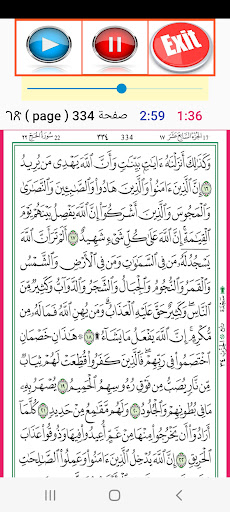 Exit
ገጽ ( page ) 334 صفحة 2:59 1:36
17 الجُزْءُ السَّابِعَ عَشَرَ ١٧ 334 ٣٣٤ 22 سُورَةُ الحَجِّ ٢٢
وَكَذَٰلِكَ أَنزَلْنَٰهُ ءَايَٰتٍۭ بَيِّنَٰتٍ وَأَنَّ ٱللَّهَ يَهْدِى مَن يُرِيدُ
١٦ إِنَّ ٱلَّذِينَ ءَامَنُوا۟ وَٱلَّذِينَ هَادُوا۟ وَٱلصَّٰبِـِٔينَ وَٱلنَّصَٰرَىٰ
وَٱلْمَجُوسَ وَٱلَّذِينَ أَشْرَكُوٓا۟ إِنَّ ٱللَّهَ يَفْصِلُ بَيْنَهُمْ يَوْمَ
ٱلْقِيَٰمَةِ إِنَّ ٱللَّهَ عَلَىٰ كُلِّ شَىْءٍ شَهِيدٌ ١٧ أَلَمْ تَرَ أَنَّ ٱللَّهَ
يَسْجُدُ لَهُۥ مَن فِى ٱلسَّمَٰوَٰتِ وَمَن فِى ٱلْأَرْضِ وَٱلشَّمْسُ
وَٱلْقَمَرُ وَٱلنُّجُومُ وَٱلْجِبَالُ وَٱلشَّجَرُ وَٱلدَّوَآبُّ وَكَثِيرٌ مِّنَ
ٱلنَّاسِ وَكَثِيرٌ حَقَّ عَلَيْهِ ٱلْعَذَابُ وَمَن يُهِنِ ٱللَّهُ فَمَا لَهُۥ مِن
مُّكْرِمٍ إِنَّ ٱللَّهَ يَفْعَلُ مَا يَشَآءُ ۩ ١٨ ۞ هَٰذَانِ خَصْمَانِ
ٱخْتَصَمُوا۟ فِى رَبِّهِمْ فَٱلَّذِينَ كَفَرُوا۟ قُطِّعَتْ لَهُمْ ثِيَابٌ
مِّن نَّارٍ يُصَبُّ مِن فَوْقِ رُءُوسِهِمُ ٱلْحَمِيمُ ١٩ يُصْهَرُ بِهِۦ
مَا فِى بُطُونِهِمْ وَٱلْجُلُودُ ٢٠ وَلَهُم مَّقَٰمِعُ مِنْ حَدِيدٍ ٢١ كُلَّمَآ
أَرَادُوٓا۟ أَن يَخْرُجُوا۟ مِنْهَا مِنْ غَمٍّ أُعِيدُوا۟ فِيهَا وَذُوقُوا۟ عَذَابَ
ٱلْحَرِيقِ ٢٢ إِنَّ ٱللَّهَ يُدْخِلُ ٱلَّذِينَ ءَامَنُوا۟ وَعَمِلُوا۟ ٱلصَّٰلِحَٰتِ